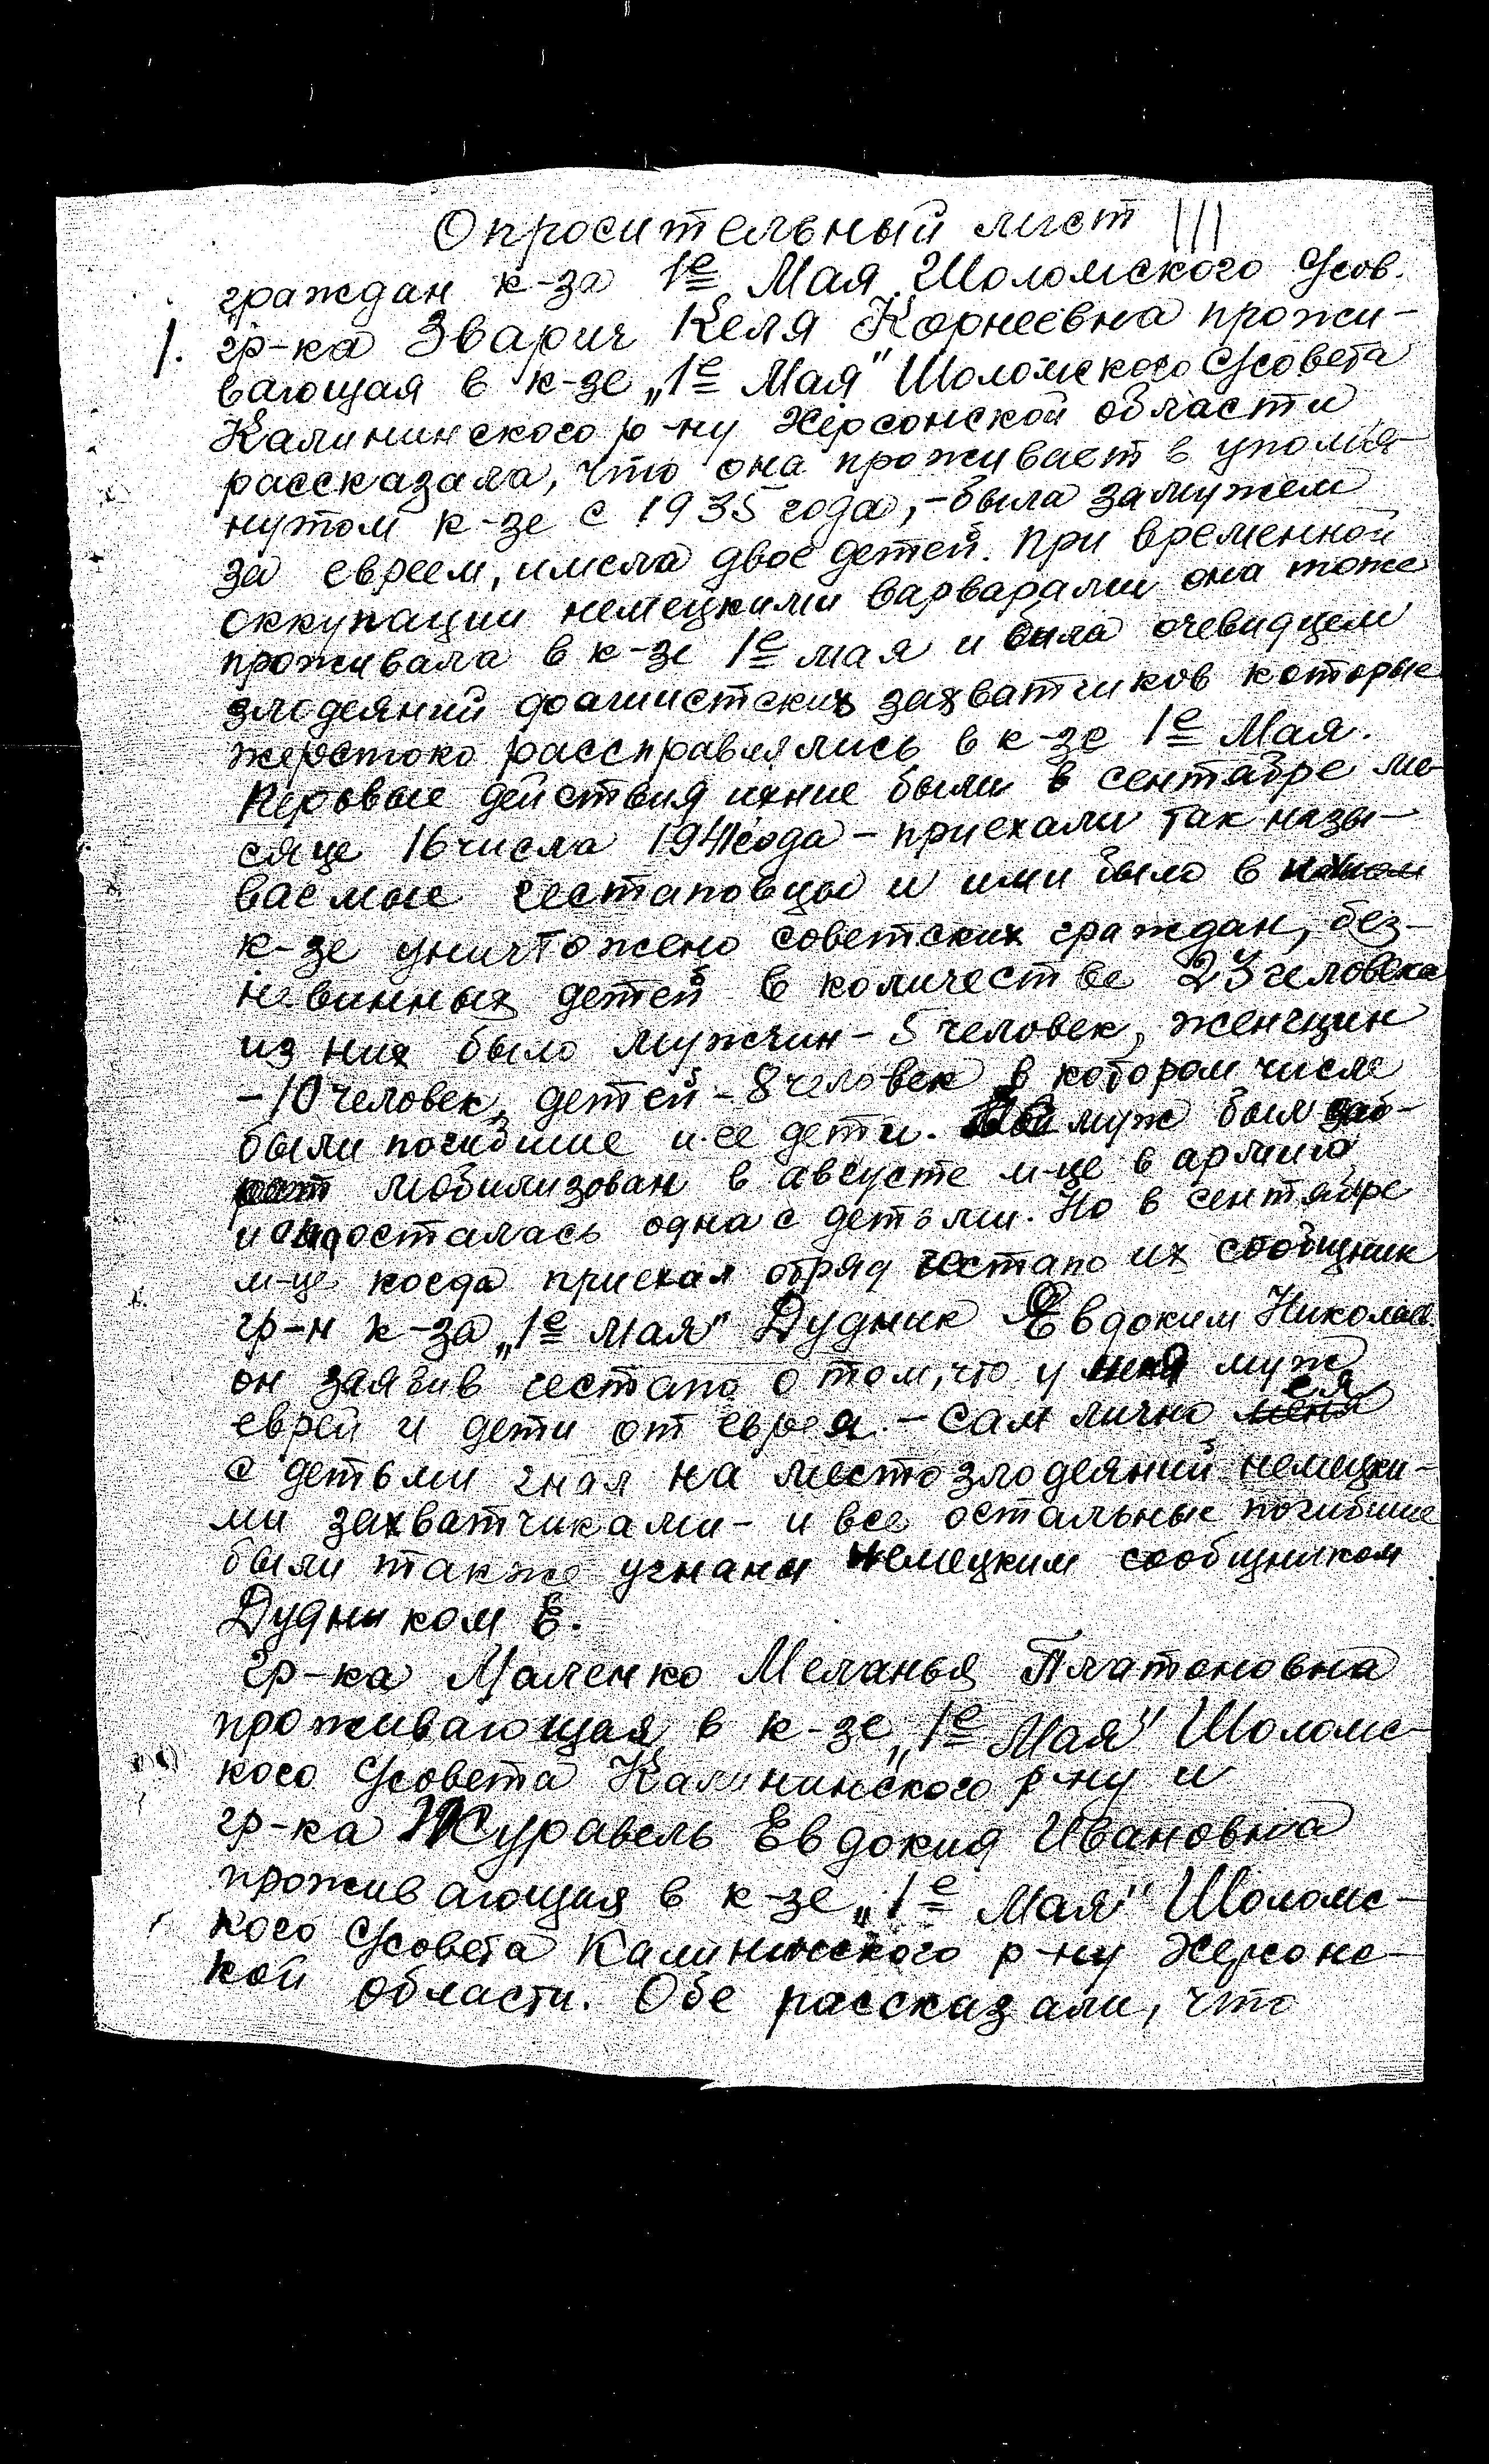 Опросительный лист 111
граждан к-за 1е Мая Шоломского С/сов.
1. гр-ка Зварич Келя Корнеевна прожи-
вающая в к-зе „1е Мая" Шоломского С/совета
Калининского р-ну Херсонской области
рассказала, что она проживает в упомя-
нутом к-зе с 1935 года, - была замужем
за евреем, имела двое детей. При временной
оккупации немецкими варварами она тоже
проживала в к-зе 1е мая и была очевидцем
злодеяний фашистских захватчиков которые
жерстоко расправлялись в к-зе 1е Мая.
Перьвые действия ихние были в сентябре ме-
сяце 16 числа 1941 года - приехали так назы-
ваемые гестаповцы и ими было в
к-зе уничтожено советских граждан, без-
невинных детей в количестве 23 человека
из них было мужчин - 5 человек, женщин
- 10 человек, детей - 8 человек в котором числе
были погибшие и ее дети. муж был
мобилизован в августе м-це в армию
и она осталась одна с детьми. Но в сентябре
м-це когда приехал отряд гестапо их сообщник
гр-н к-за „1е мая" Дудник Евдоким Николаев.
он заявив гестапо о том, что у муж
еврей и дети от еврея. - Сам лично меня ея
с детьми гнал на место злодеяний немецки-
ми захватчиками - и все остальные погибшие
были также угнаны немецким сообщником
Дудником Е.
гр-ка Маленко Меланья Платоновна
проживающая в к-зе „1е Мая" Шоломс-
кого С/совета Калининского р-ну и
гр-ка Журавель Евдокия Ивановна
проживающия в к-зе „1е Мая" Шоломс-
кого С/совета Калининского р-ну Херсонс-
кой области. Обе рассказали, что